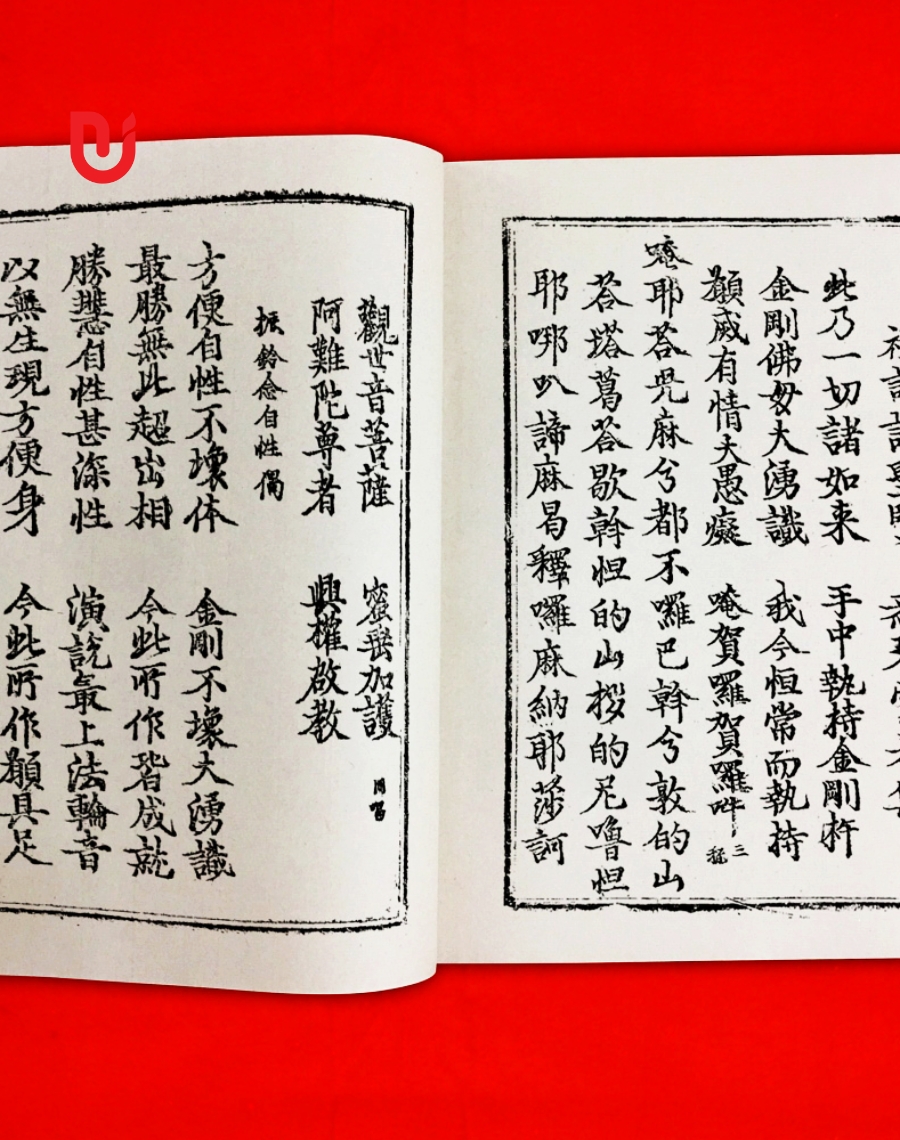 此乃一切諸如来 手中執持金剛杵
金剛佛母大湧識 我今恒常而執持
願威有情大愚癡 唵賀囉賀囉吽 三
唵耶荅咒麻兮都不囉巴斡兮敦的山
荅塔葛荅歇斡怛的山拶的尼嚕怛
耶哪叭諦麻曷釋囉麻納耶莎訶
觀世音菩薩 密垂加護 同唱
阿難陀尊者 興權啟教
振鈴念自性偈
方便自性不壞体 金剛不壞大湧識
最勝無此超出相 今此所作皆成就
勝慧自性甚深性 演說最上法輪音
以無生現方便身 今此所作願具足